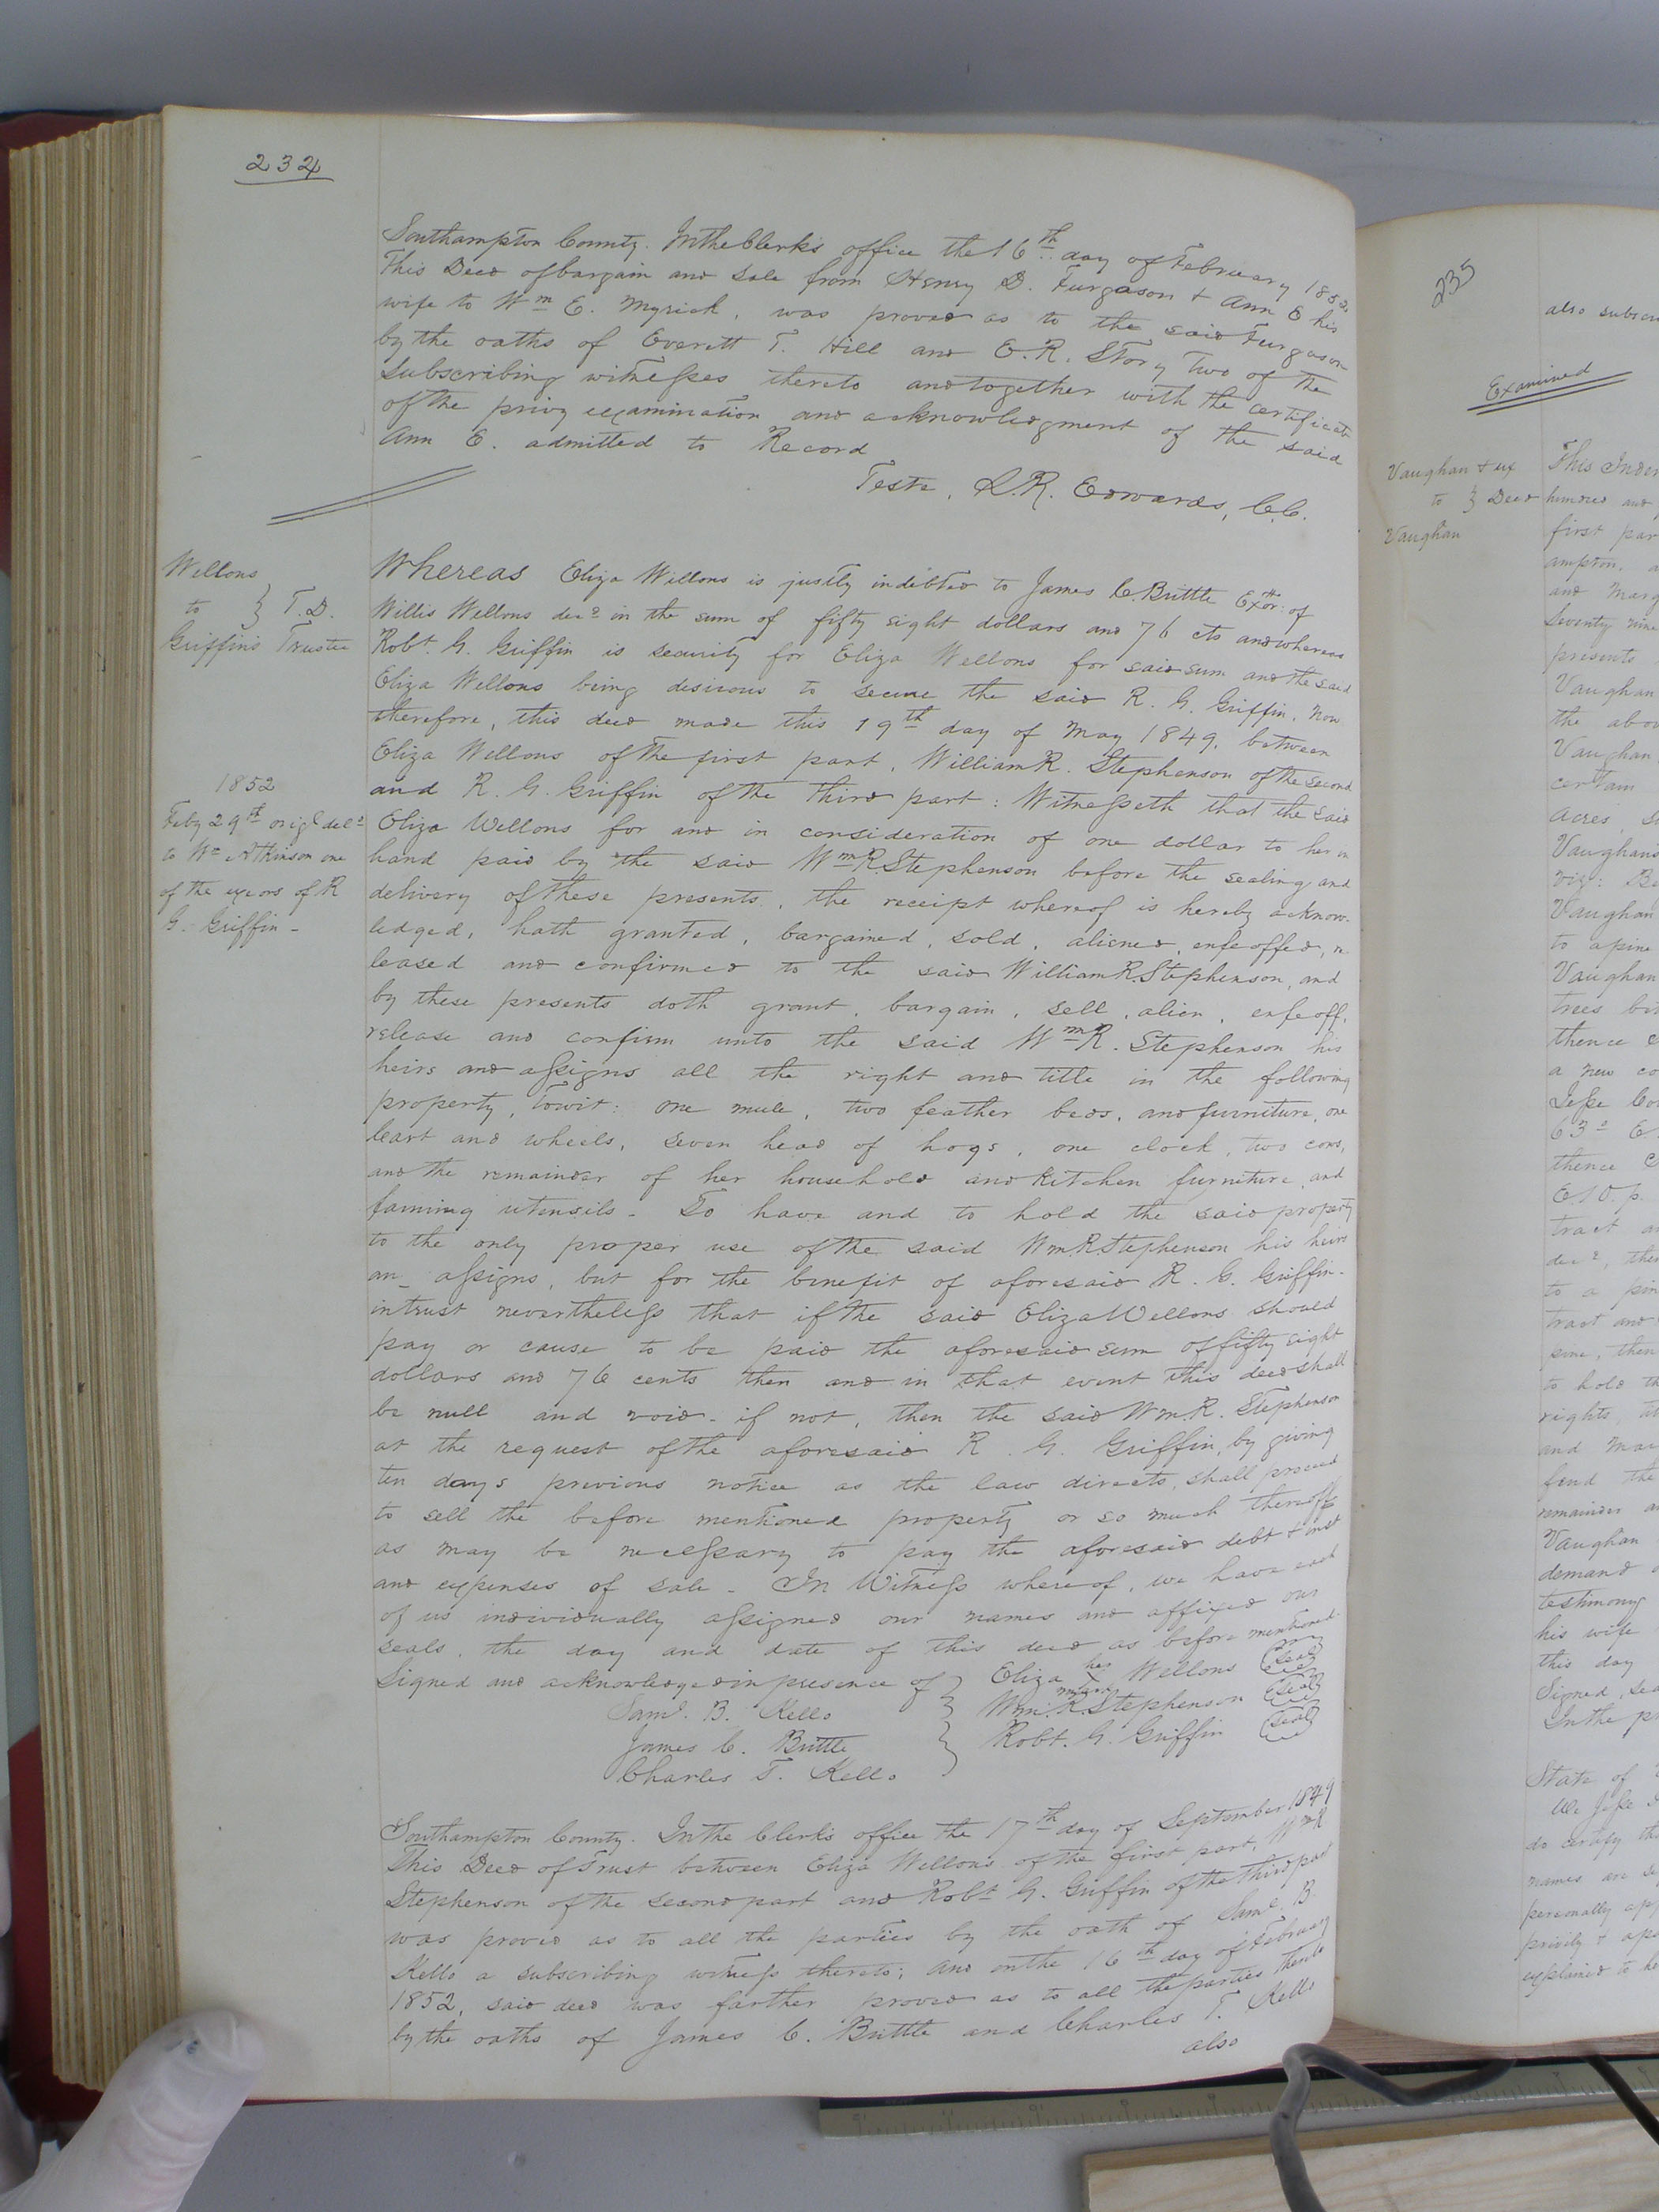 234
Southampton County. In the Clerk's office the 16th day of February 1852
This Deed of bargain and sale from Henry D. Furgason & Ann E his
wife to Wm E. Myrick, was proved as to the said Furgason
by the oaths of Everett T. Hill and E. R. Story two of the
subscribing witnesses thereto and together with the certificate
of the privy examination and acknowledgment of the said
Ann E. admitted to Record
Teste, L. R. Edwards, C.C.
Wellons
to } T. D.
Griffin's Trustee
1852
Feby 29th origl deld
to Wm Atkinson one
of the exors of R
G. Griffin -
Whereas Eliza Wellons is justly indebted to James C. Brittle Exor. of
Willis Wellons decd in the sum of fifty eight dollars and 76 cts and whereas
Robt. G. Griffin is security for Eliza Wellons for said sum and the said
Eliza Wellons being desirous to secure the said R. G. Griffin. Now
therefore, this deed made this 19th day of May 1849, between
Eliza Wellons of the first part, William R. Stephenson of the second
and R. G. Griffin of the third part: Witnesseth that the said
Eliza Wellons for and in consideration of one dollar to her in
hand paid by the said Wm R. Stephenson before the sealing and
delivery of these presents, the receipt whereof is hereby acknow-
ledged, hath granted, bargained, sold, aliened, enfeoffed, re
leased and confirmed to the said William R. Stephenson, and
by these presents doth grant, bargain, sell, alien, enfeoff,
release and confirm unto the said Wm R. Stephenson his
heirs and assigns all the right and title in the following
property, towit: one mule, two feather beds, and furniture, one
Cart and wheels, seven head of hogs, one clock, two cows,
and the remainder of her household and kitchen furniture, and
farming utensils - To have and to hold the said property
to the only proper use of the said Wm R. Stephenson his heirs
an_ assigns, but for the benefit of aforesaid R. G. Griffin -
in trust nevertheless that if the said Eliza Wellons should
pay or cause to be paid the aforesaid sum of fifty eight
dollars and 76 cents then and in that event this deed shall
be null and void - if not, then the said Wm R. Stephenson
at the request of the aforesaid R. G. Griffin, by giving
ten days previous notice as the law directs, shall proceed
to sell the before mentioned property or so much thereoff
as may be necessary to pay the aforesaid debt & inst
and expenses of sale - In Witness whereof, we have each
of us individually assigned our names and affixed our
seals, the day and date of this deed as before mentioned.
Signed and acknowledged in presence of } Eliza her X mark Wellons (seal)
Saml. B. Kello } Wm. R. Stephenson (seal)
James C. Brittle } Robt. G. Griffin (seal)
Charles T. Kello
Southampton County. In the Clerk's office the 17th day of September 1849
This Deed of Trust between Eliza Wellons of the first part, Wm R
Stephenson of the second part and Robt G. Griffin of the third part
was proved as to all the parties by the oath of Saml. B.
Kello a subscribing witness thereto; and on the 16th day of February
1852, said deed was farther proved as to all the parties thereto
by the oaths of James C. Brittle and Charles T. Kello
also
235
Examined
Vaughan & ux
to } Deed
Vaughan
also
This
first
and
presents
Vaughan
the
Vaughan
certain
Acres,
Vaughan
to a pine
Vaughan
trees
thence
a new
thence
tract
to a
tract and
to hold
rights,
and
remainder
Vaughan
demand
testimony
his wife
this day
Signed,
In the
State of
do certify
names are
personally
privily &
explained to